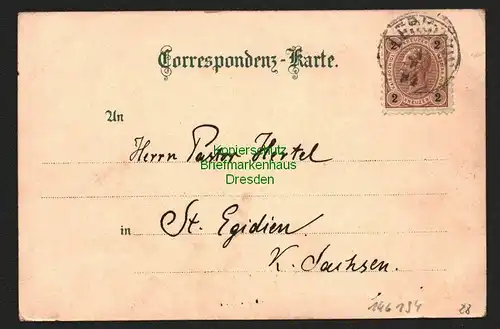 Correspondenz-Karte.
2 2
An
Herrn Pastor Hertel
Kopierschutz
Briefmarkenhaus
Dresden
in St. Egidien
K. Sachsen.
146194 28